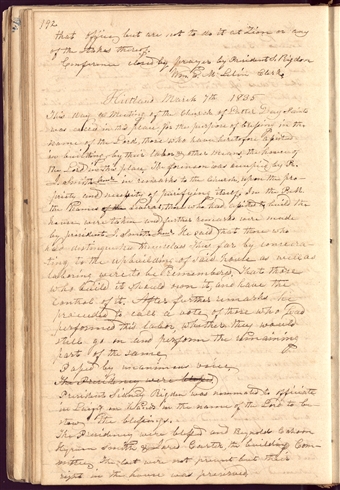 192
that office, but are not to do it at Zion or any
of the Stakes thereof.
Conference closed by prayer by President S. Rigdon
Wm E. McLelin Clerk
Kirtland March 7th 1835
This day a Meeting of the Church of Latter Day Saints
was called in this place for the purpose of blessing in the
name of the Lord, those who have heretofore assisted
in building, by their labor & other means, the house of
the Lord in this place. The forenoon was occupied by Pr.
J. Smith Junr. in remarks to the Church upon the pro-
priety and necessity of purifying itself. In the P.M.
the names of those who had assisted to build the
house were taken and further remarks were made
by president J. Smith Jr. He said that those who
had distinguished themselves thus far by consecra-
ting to the upbuilding of said house as well as
laboring were to be Remembered. That those
who build it should own it, and have the
control of it. After further remarks, he
proceeded to call a vote of those who had
performed this labor, whether they would
still go on and perform the remaining
part of the same.
Passed by unanimous voice
The Presidency were blessed
President Sidney Rigdon was nominated to officiate
in Laying on of Hands in the name of the Lord to be-
stow the blessings.
The Presidency were blessed and Reynolds Cahoon
Hyrum Smith & Jared Carter the building Com-
mittee. The last were not present but their
right in the house was preserved